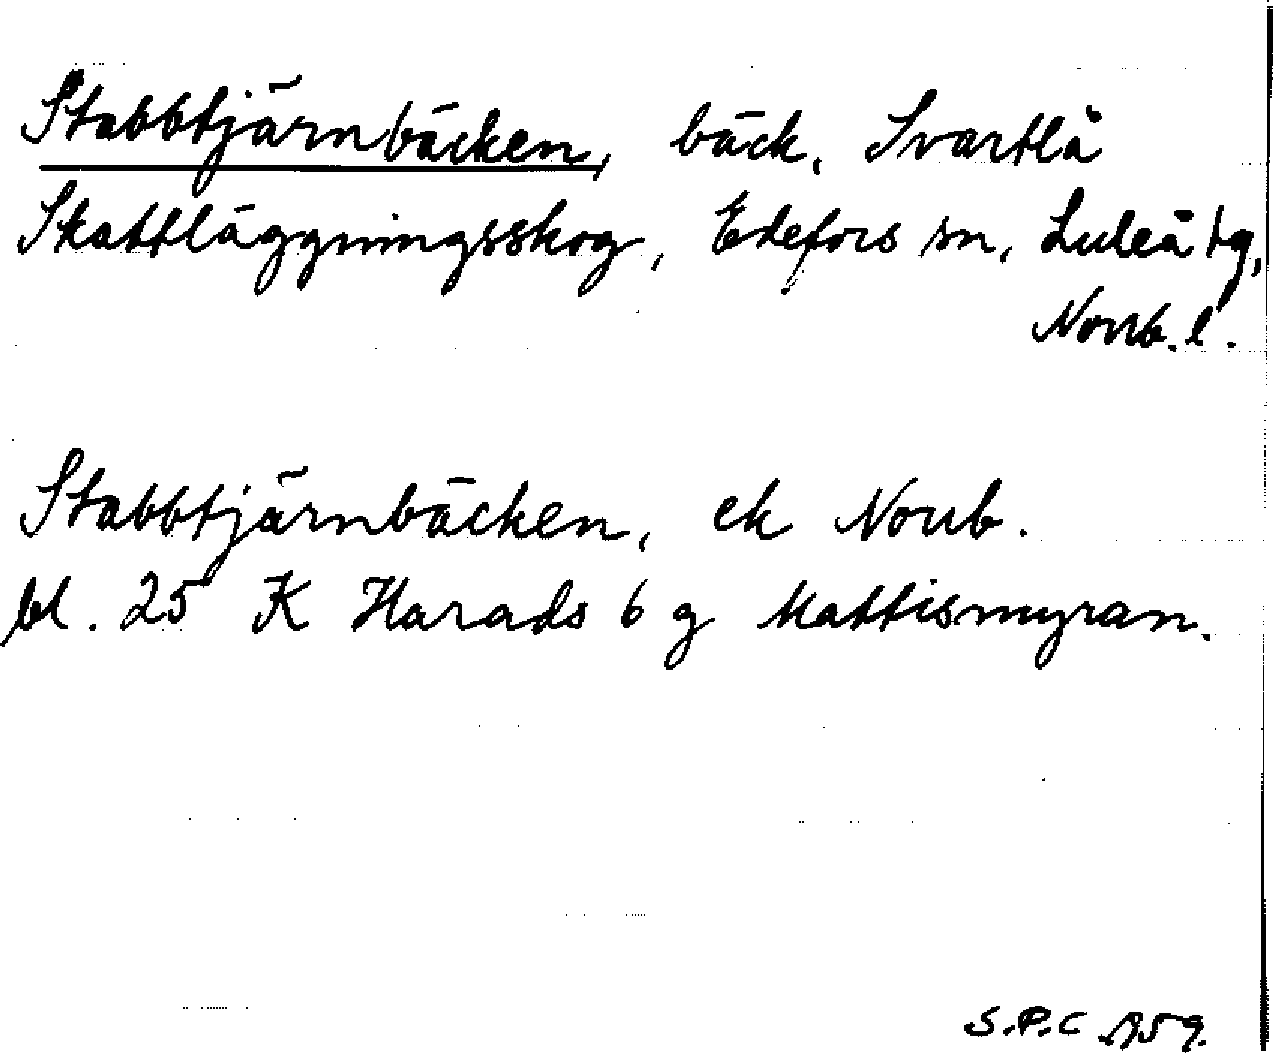 Stabbtjärnbäcken, bäck, Svartlå
Skattläggningsskog, Edefors sn, Luleå tg,
Norrb. l.
Stabbtjärnbäcken, ek Norrb.
bl. 25 K Harads 6 g Mattismyran.
S.P.C 1959.